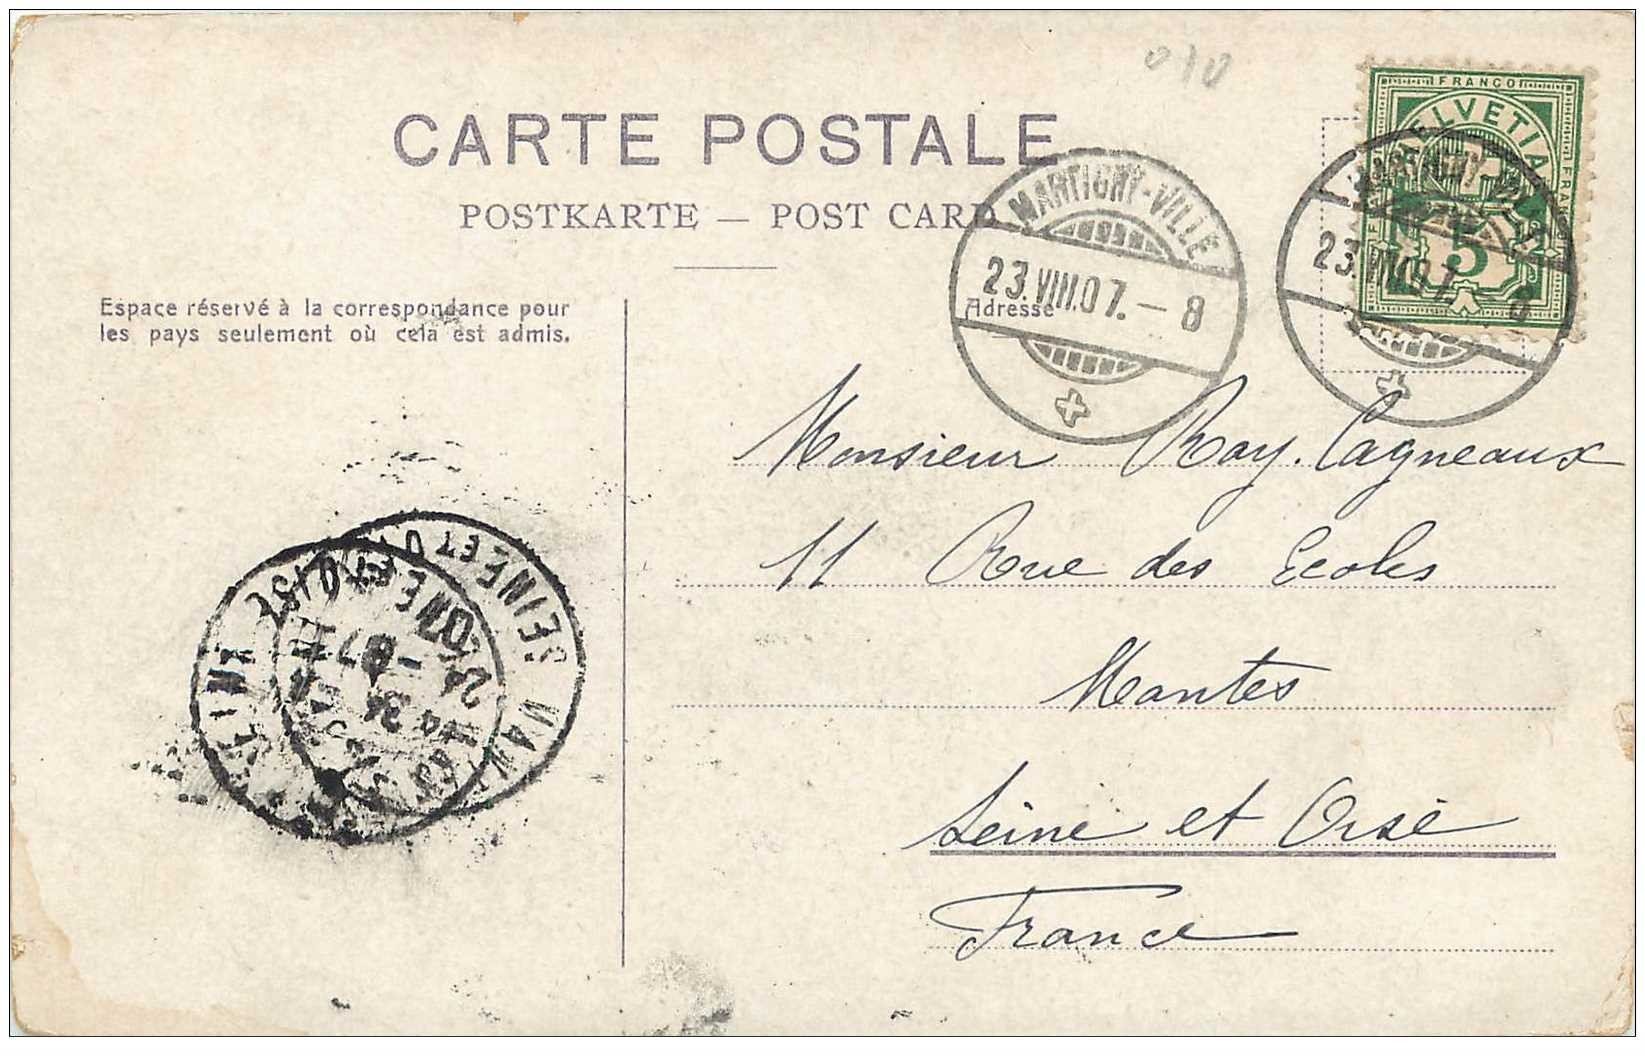 010
CARTE POSTALE
POSTKARTE — POST CARD
FRANCO
HELVETIA
5
MARTIGNY-VILLE
23.VIII.07.–8
MARTIGNY-VILLE
23.VIII.07.–8
Espace réservé à la correspondance pour
les pays seulement où cela est admis.
Adresse
Monsieur Ray. Cagneaux
11 Rue des Ecoles
Mantes
Seine et Oise
France
SEINE ET OISE